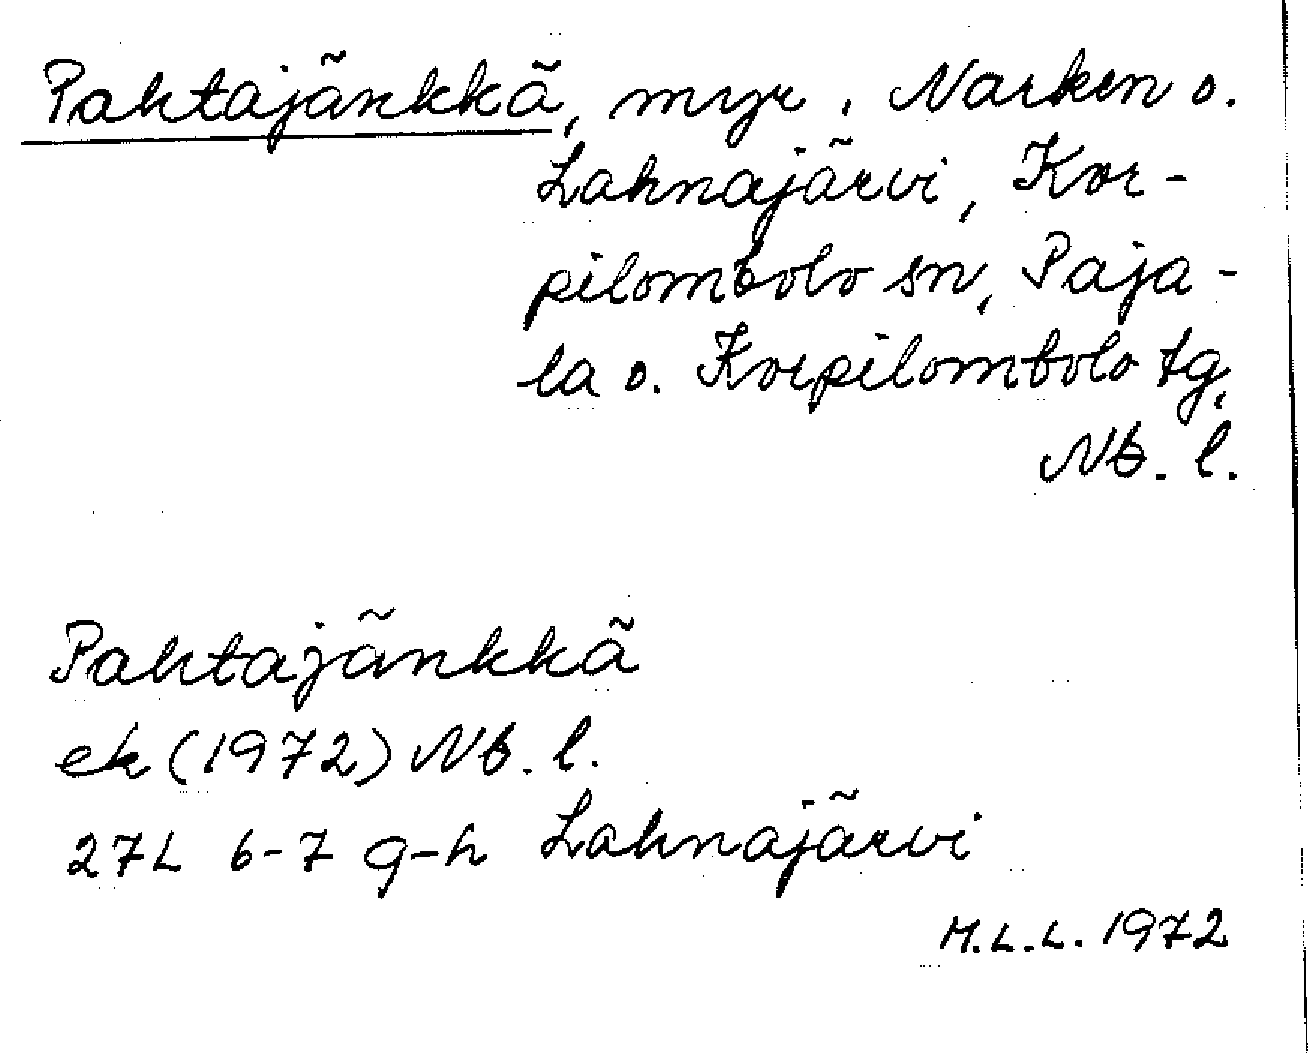 Pahtajänkkä, myr. Narken o.
Lahnajärvi, Kor-
pilombolo sn, Paja-
la o. Korpilombolo tg,
Nb. l.
Pahtajänkkä
ek (1972) Nb. l.
27L 6-7 g-h Lahnajärvi
M.L.L. 1972